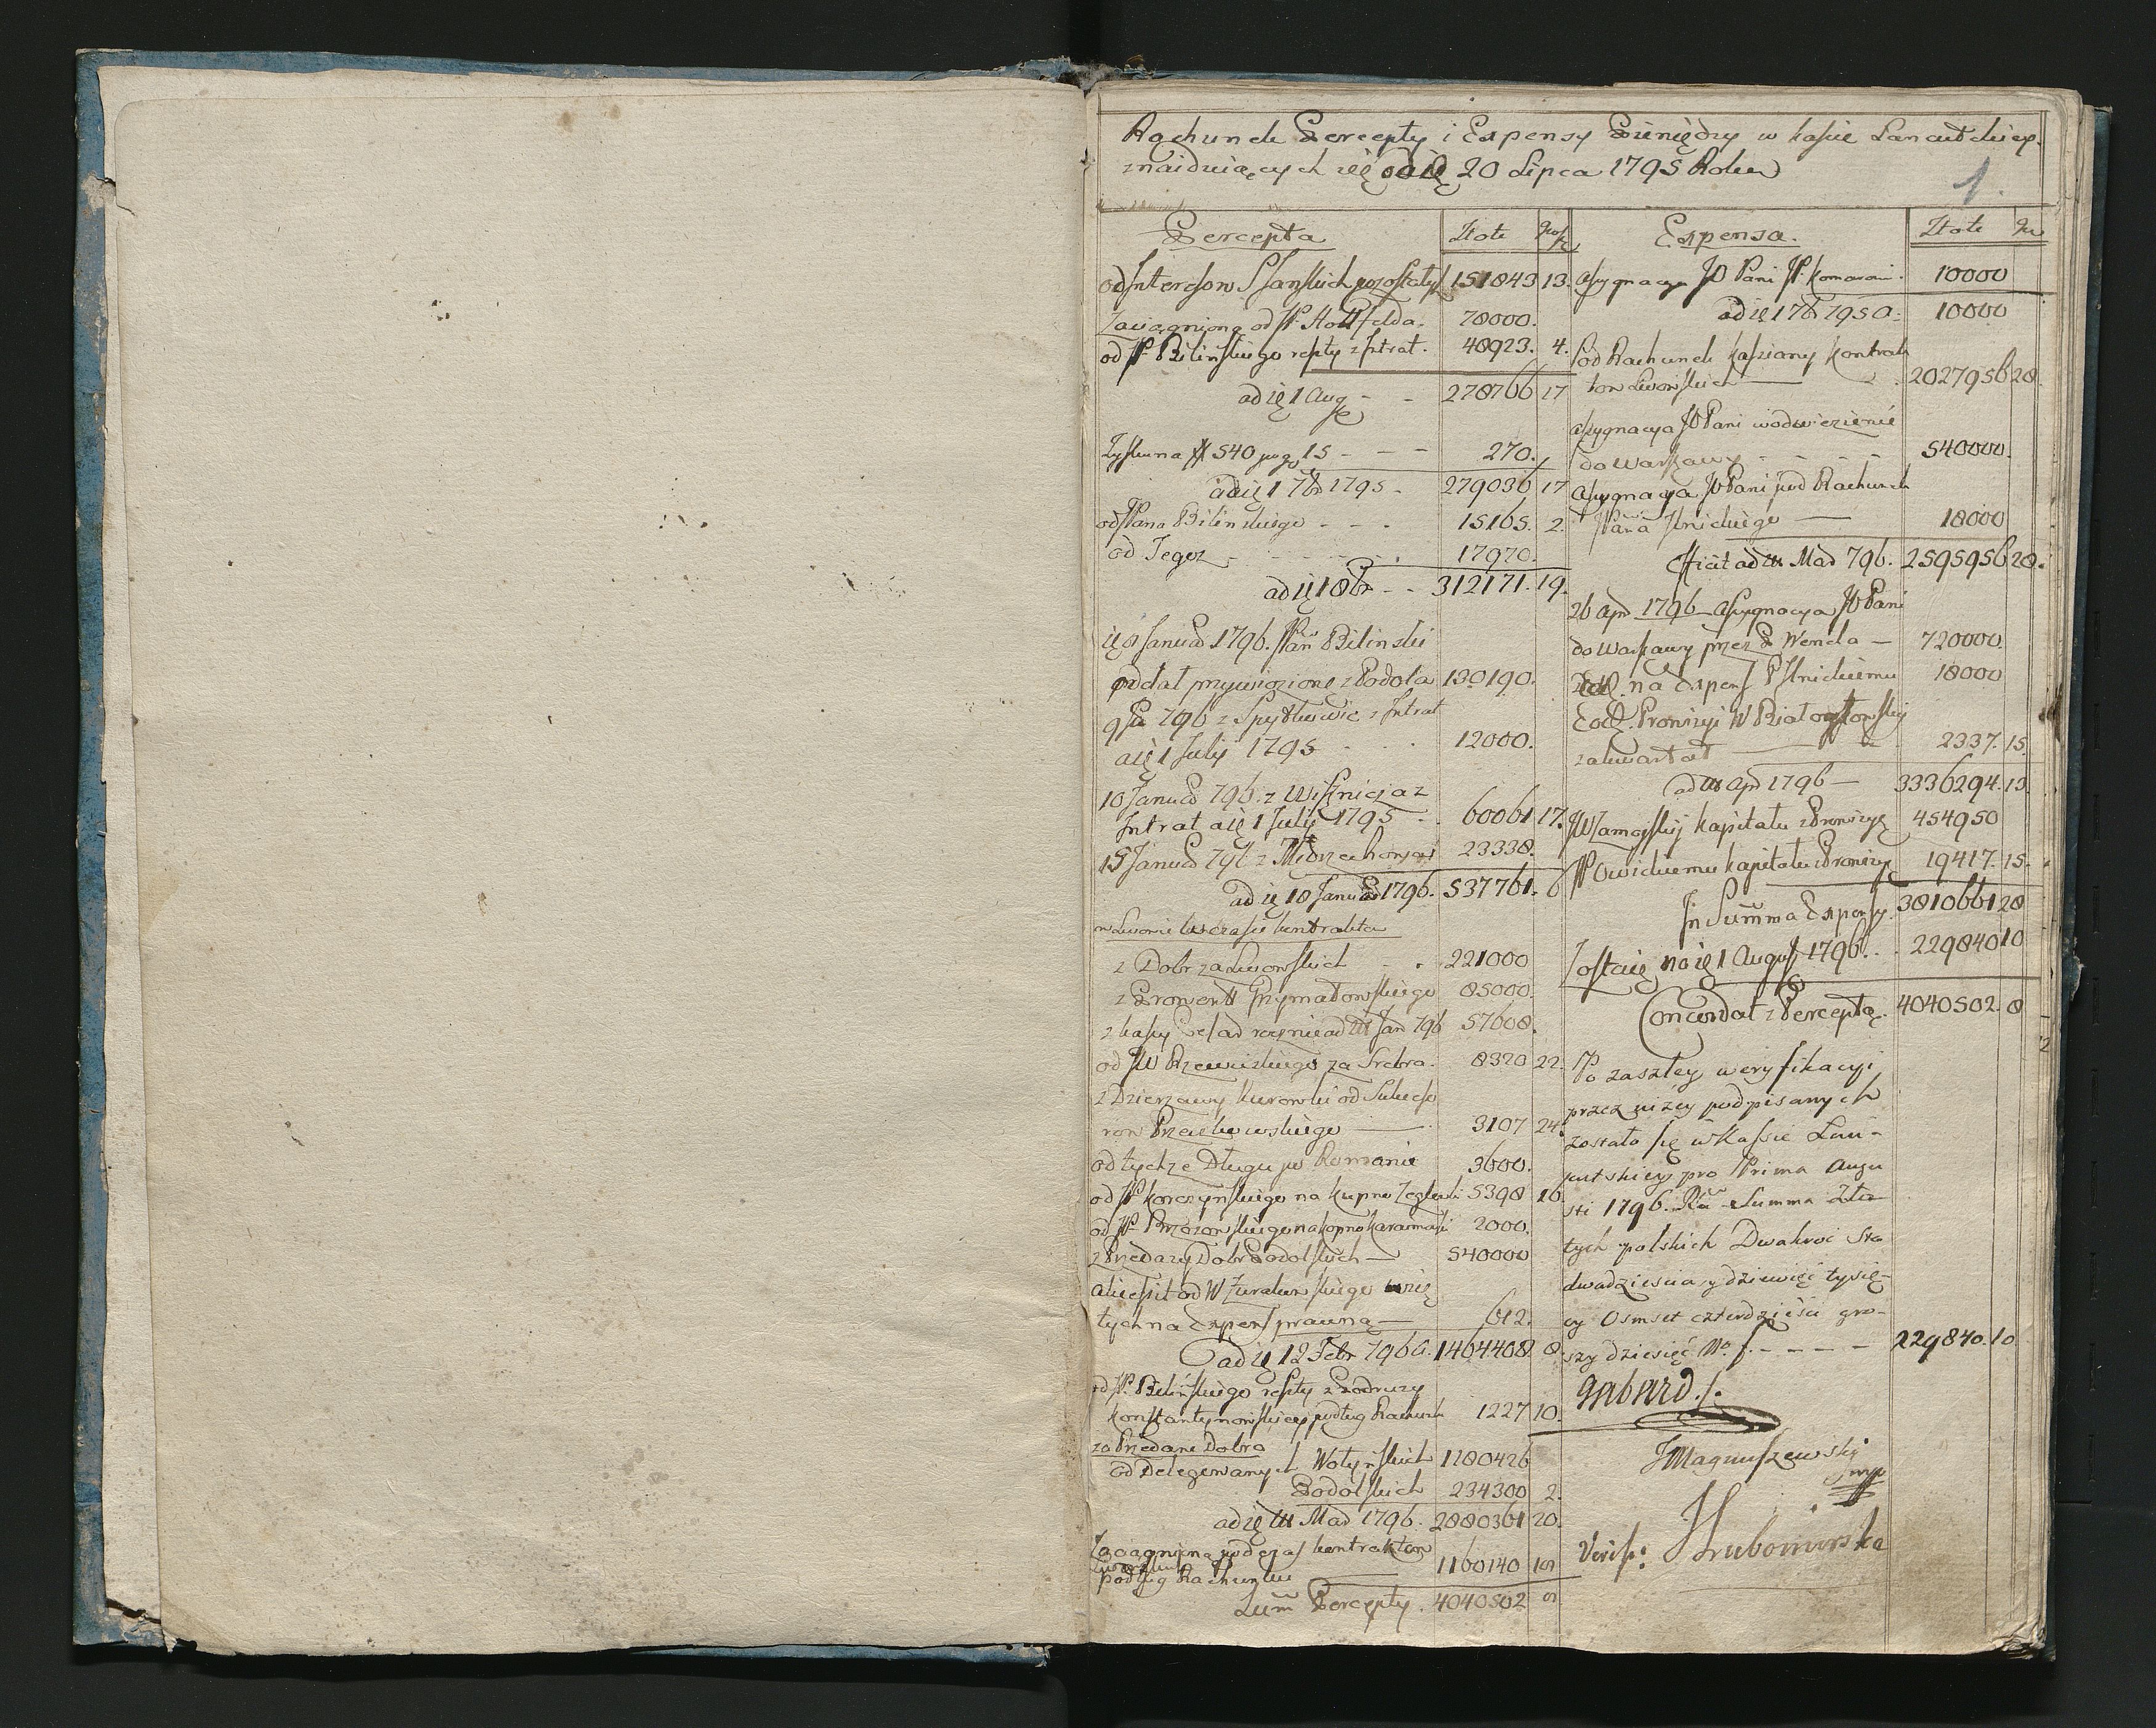 Rachunek Percepty i Expensy Pieniędzy w kasie Lancutskiey
znaiduiących się od 20 Lipca 1795 Roku
1.
Percepta Złote gros
od Interesow pozostałych 151843 13.
Zaciągnione od JP. Hottfelda. 78000.
od JP. Bilinskiego reszty z Intrat. 48923. 4.
ad 1 Aug - - 278766 17
Zysku na # 540 po g 15 - - - 270.
ad 1 7br 1795 - 279036 17
od Pana Bilinskiego - - - 15165. 2.
od Tegoz - - - 17970.
ad 1 8br - - 312171. 19.
8 Januar 1796. Pan Bilinski
oddał przywiezione z Podola 130190.
9 Ja 796 z Spytkowic z Intrat
a 1 July 1795 - - 12000.
10 Januar 796. z Wisznicza z
Intrat a 1 July 1795 - 60061 17.
15 Januar 796 z 23338.
ad 18 Januar 1796. 537761. 6
w Lwowie w czasie kontraktow
z Dobr za Lwowskich - - 221000
z Prowent Grzymałowskiego 85000.
z kassy Jan 796 57608.
od JW Rzewuskiego za Srebra. 8320 22.
z Dzierzawy Kurowki od Sukceso
row 3107 24.
od tychze Długu po Romanie 3600.
od JP Korczynskiego na kupno 5398 16.
od JP. Brzozowskiego na kupno 2000.
z Przedazy Dobr Podolskich — 540000
od W Zurakowskiego wzię
tych na expens prawną — 612.
ad 12 Febr 796 a. 1464408 8.
od JP. Bilinskiego reszty z Podruzy
Konstantynowskiey podług Rachunku 1227 10.
za Przedane Dobra
od Delegowanych Wołynskich 1180426
Podolskich 234300 2.
ad Mar 1796. 2880361 20.
Zaciągniono podczas kontraktow
Lwowskich
podług Rachunku 1160140 18
Sum Percepty. 4040502 8
Expensa. Złote gr
assygnacya JO Pani JP. 10000
ad 1 7br 795 a: 10000
Pod Rachunek kassiany kontrak
tow Lwowskich — 2027956 28.
assygnacya JO Pani w odwiezienie
do Warszawy - - - - 540000.
assygnacya JO Pani pod Rachunek
Pana Ilnickiego — 18000
ad Mar 796. 2595956 28.
26 apr 1796 assygnacya JO Pani
do Warszawy przez P Wenda — 720000.
Eod. na Expens P Ilnickiemu 18000
Eod. Prowizyi W Białogłowskiey
za kwartał 2337. 15.
ad apr 1796 — 3336294. 13.
JW Zamoyskiey kapitału z Prowizyą 454950
JP Owickiemu kapitału z Prowizyą 19417. 15.
In Summa Expensy. 3810661 28
Zostaie na 1 August 1796. . . 229840 10
Concordat z Perceptą. 4040502. 8
Po zaszłey weryfikacyi
przez niżey podpisanych
zostało się w Kassie Lan-
cutskiey pro Prima Augu
sti 1796. Ru Summa Zło
tych polskich Dwakroc Sto
dwadziescia y dziewięć tysię-
cy Osmset czterdzieści gro-
szy dziesięć No. f. - - - - 229840. 10.
Gabard /.
J Magnuszewski
mp
Verif: J Lubomirska